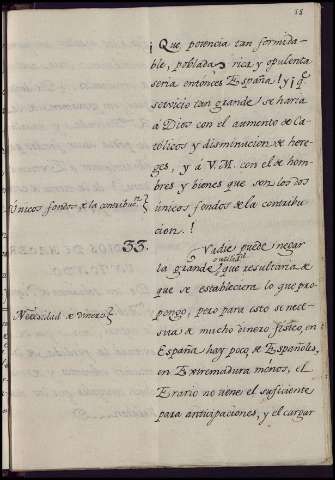 ¡Que potencia tan formida-
ble, poblada rica y opulenta
seria entónces España! y ¡q.e
servicio tan grande se haría
à Dios con el aumento de Ca-
tólicos y disminucion de here-
ges, y à V.M. con el de hom-
bres y bienes que son los dos
Únicos fondos de la contribu.n
únicos fondos de la contribu-
cion.!
33.
Nadie puede negar
la grande utilidad que resultaria de
que se estableciera lo que pro-
Necesidad de dinero
pongo, pero para esto se nece-
sita de mucho dinero
España hay poco, de Españoles,
en Extremadura menos, el
Erario no tiene el suficiente
para anticipaciones, y el cargar